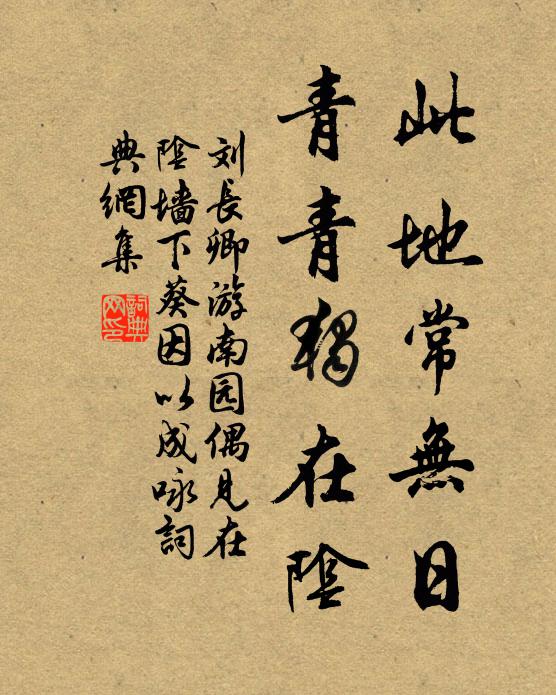 此地常無日
青青獨在陰
刘長卿游南园偶見在
陰墙下葵因以成咏詞
典網集
詞典网印